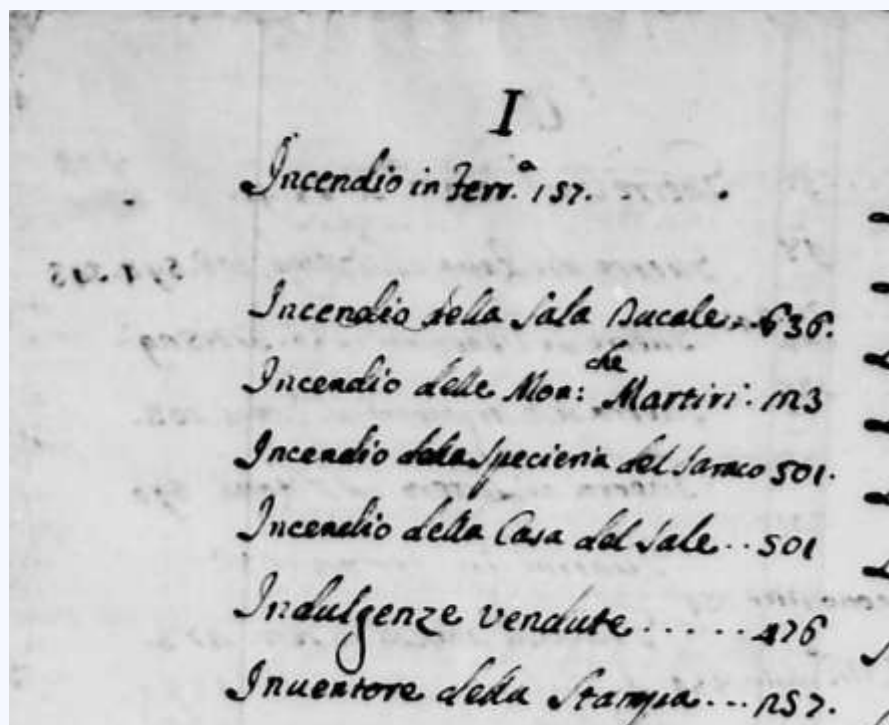 I
Incendio in Ferr.ª 157. . .
Incendio della Sala Ducale... 636.
Incendio delle Mon:che Martiri.
Incendio della Specieria del 501.
Incendio della Casa del Sale... 501
Indulgenze vendute...... 476
Inuentore della Stampa...